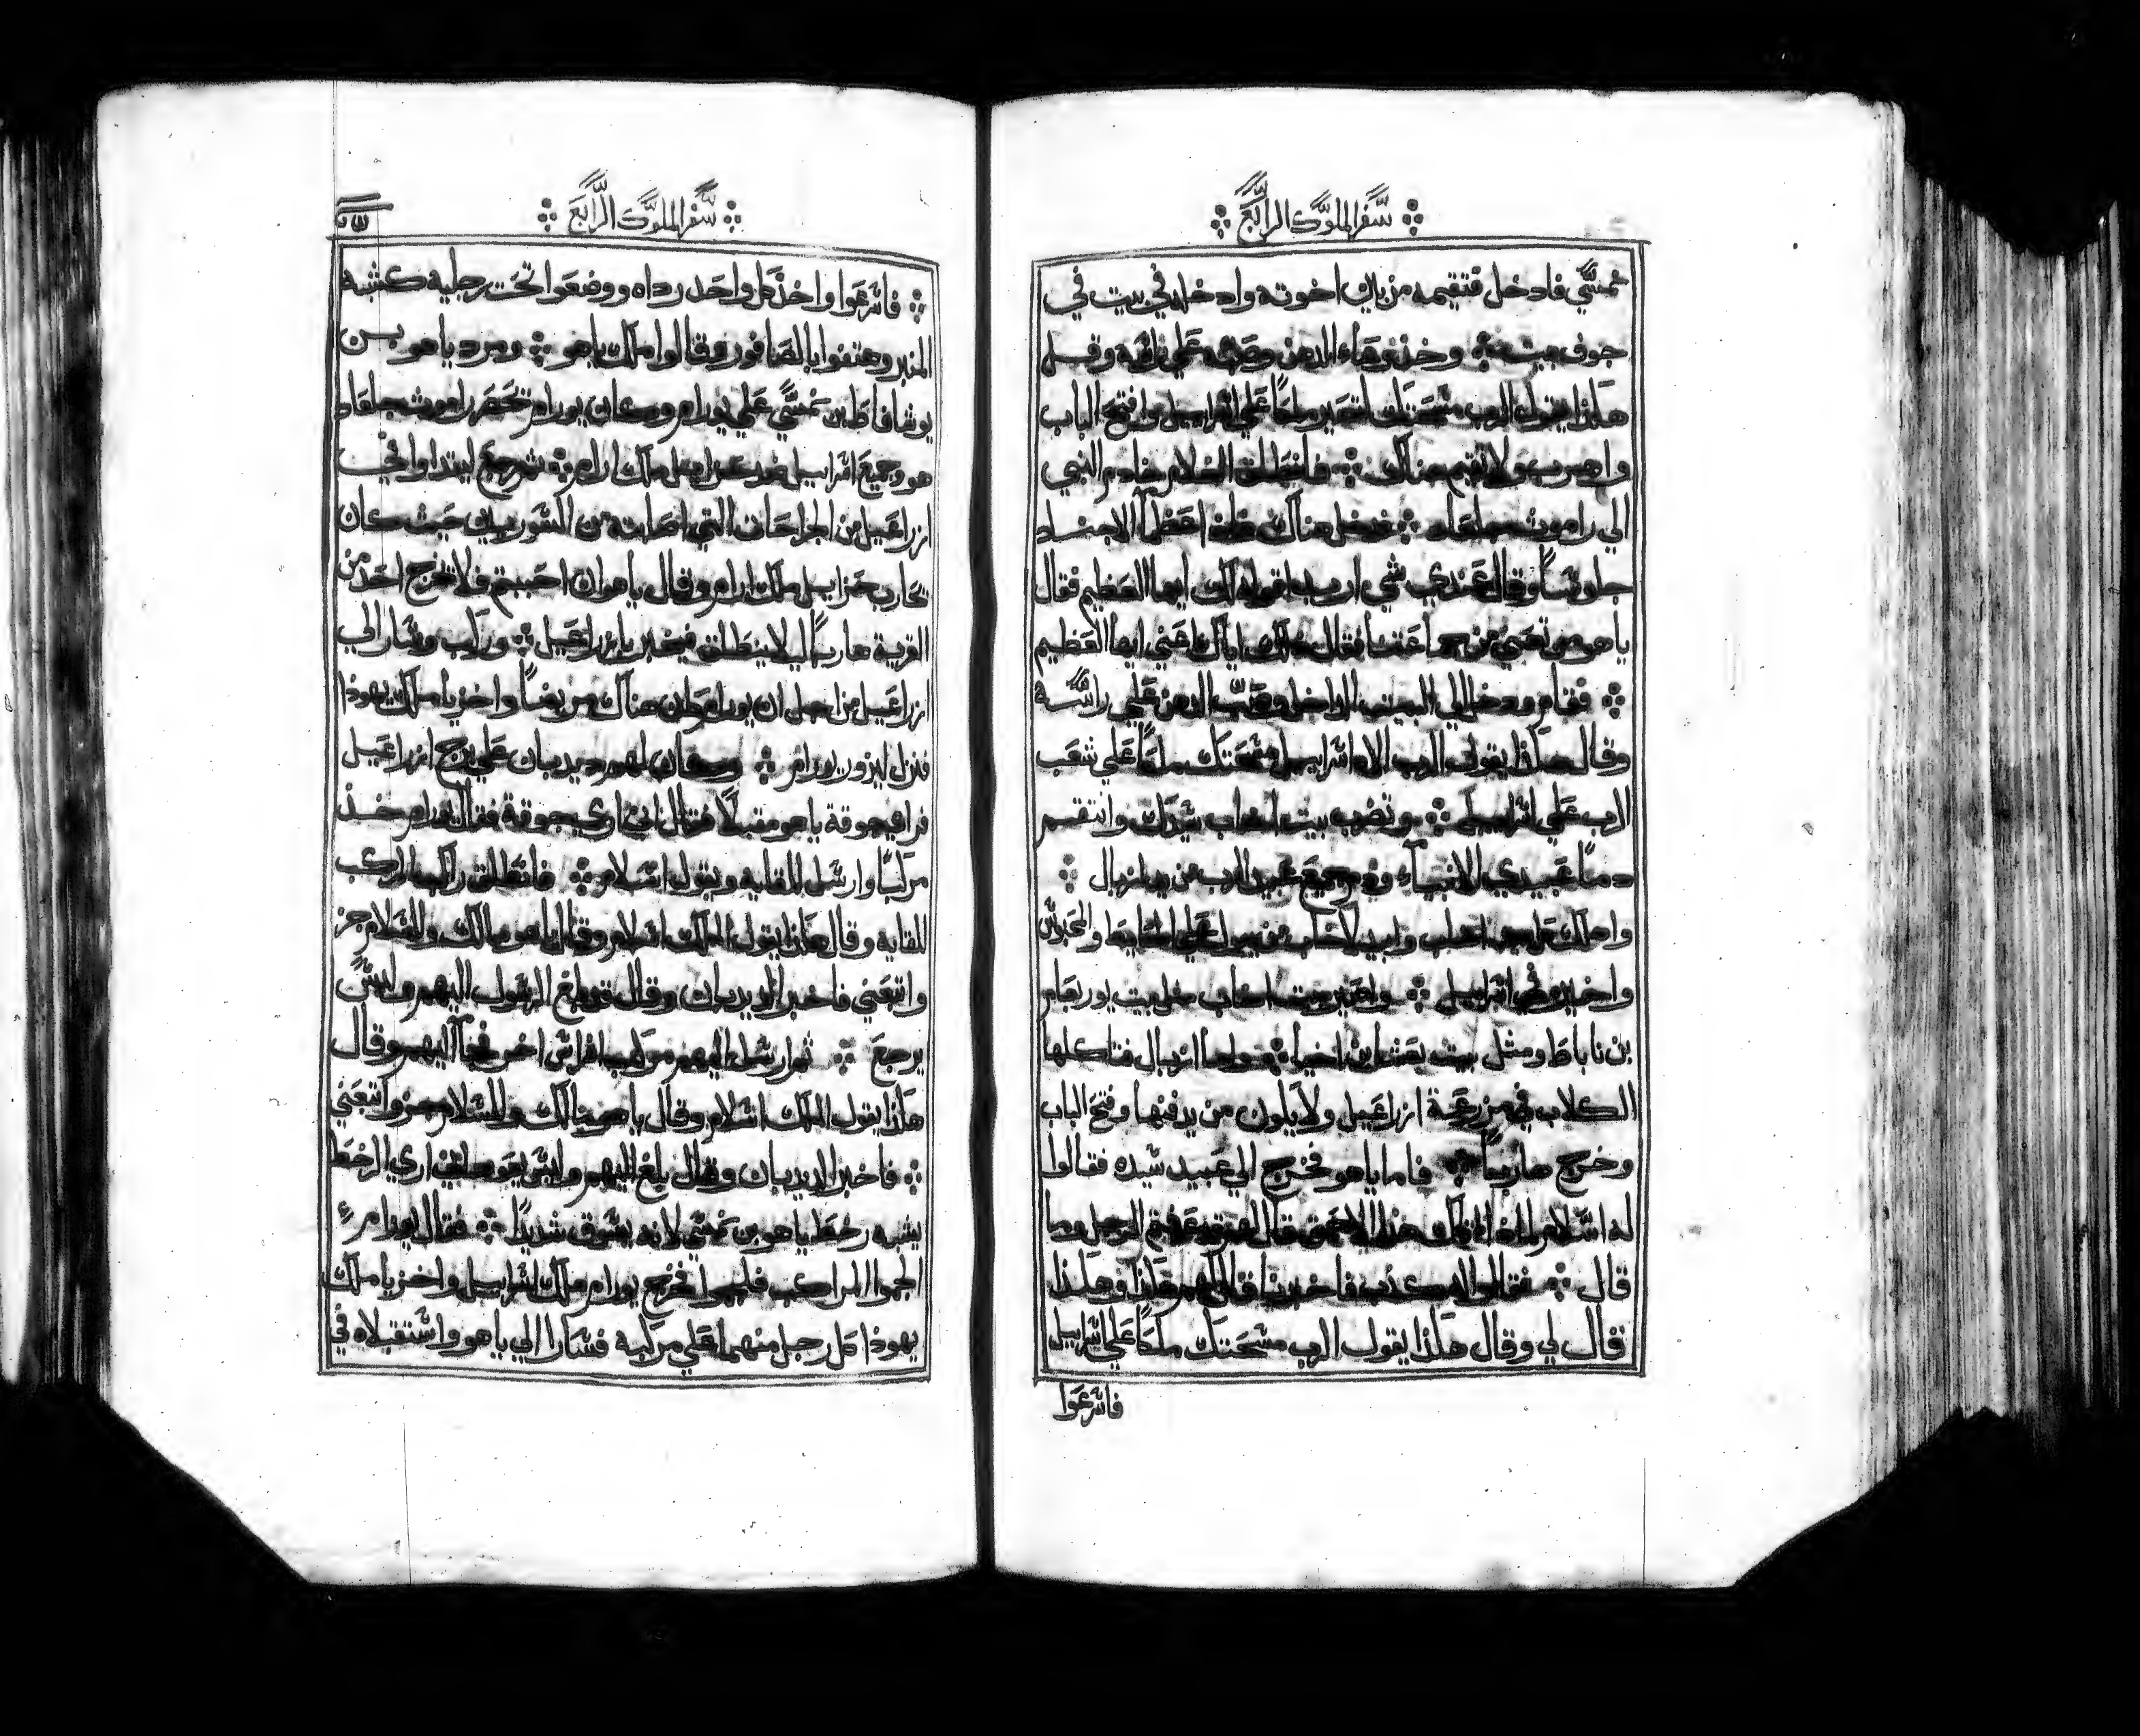 سفر الملوك الرابع
نمسي فادخل فتقيمه من بين اخوته وادخله في بيت في
جوف بيت وخذ وعاء الدهن وصبه علي راسه وقل
هكذا يقول الرب مسحتك لتصير ملكاً علي اسراييل وافتح الباب
واهرب ولا تقيم هناك فانطلق الغلام خادم النبي
الي راموث جلعاد فدخل هناك فاذا عظما الاجناد
جلوساً وقال عندي شي اريد اقوله لك ايها العظيم فقال
ياهو من تعني من جماعتنا فقال له اياك اعني ايها العظيم
فقام ودخل الي البيت الداخل وصب الدهن علي راسه
وقال هكذا يقول الرب الاه اسراييل مسحتك ملكاً علي شعب
الرب علي اسراييل وتضرب بيت اخاب سيدك وانتقم
دما عبيدي الانبياء ودم جميع عبيد الرب من يد ازبال
واهلك بيت اخاب وابيد لاخاب من يبول علي الحايط والمحبوس
واخيره في اسراييل واصير بيت اخاب مثل بيت يوربعام
بن ناباط ومثل بيت بعشا بن اخيا واما ازبال فتاكلها
الكلاب في مزرعة ازراعيل ولا يكون من يدفنها وفتح الباب
وخرج هارباً فاما ياهو فخرج الي عبيد سيده فقالوا
له اسلام لماذا اتاك هذا الاحمق قال لهم قد عرفتم الرجل وما
قال فقالوا له كذب فاخبرنا فقال لهم هكذا وهكذا
قال لي وقال هكذا يقول الرب مسحتك ملكاً علي اسراييل
فاسرعوا
سفر الملوك الرابع
فاسرعوا واخذ كل واحد رداه ووضعوا تحت رجليه كشبه
المنبر وهتفوا بالصافور وقالوا ملك ياهو ومرد ياهو بن
يوشافاط بن نمسي علي يورام وكان يورام تحصر راموث جلعاد
هو وجميع اسراييل من عزاييل ملك ارام ثم رجع ليتداوا في
ازراعيل من الجراحات التي اصابته من السوريين حيث كان
تحارب حزاييل ملك ارام وقال ياهو ان احببتم فلا تخرج احد من
القرية هارباً ليلا ينطلق فيخبر بازراعيل وركب وسار الي
ازراعيل من اجل ان يورام كان هناك مريضاً واخزيا ملك يهوذا
فنزل ليزور يورام وكان لهم ديدبان علي برج ازراعيل
فراي جوقة ياهو مقبلاً فقال اني اري جوقة فقال يورام خذ
مركباً وارسل للقايه ويقول اسلام فانطلق راكب المركب
للقايه وقال هكذا يقول الملك اسلام وقال ياهو مالك وللسلام جز
واتبعني فاخبر الديدبان وقال قد بلغ الرسول اليهم وليس
يرجع ثم ارسل اليهم مركب افراس اخر فجا اليهم وقال
هكذا يقول الملك اسلام وقال ياهو مالك وللسلام جز واتبعني
فاخبر الديدبان وقال بلغ اليهم وليس يعود لكني اري الرخط
يشبه رخط ياهو بن نمسي لانه يسوق شديداً فقال يورام
الجموا المراكب فلجموا فخرج يورام ملك اسراييل واخزيا ملك
يهوذا كل رجل منهما علي مركبه فسارا الي ياهو واستقبلاه في